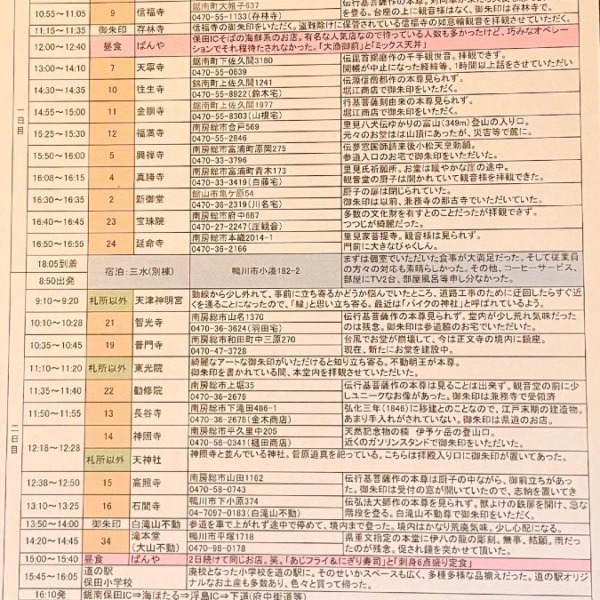 鋸南町大帷子637
伝行基菩薩の本尊。
10:55～11:05
9
信福寺
0470-55-1133(存林寺)
を登る。台座の上に観音様はなく、御朱印は存林寺で。
11:15～11:35
御朱印
存林寺
信福寺の御朱印をいただく。盗難除けに保管されている信福寺の如意輪観音を拝観させていただく。
12:00～12:40
昼食
ばんや
保田ICそばの海鮮系のお店。有名な人気店なので待っている人数も多かったけど、巧みなオペレーションでそれ程待たされなかった。「大漁御前」と「ミックス天丼」
13:00～14:10
7
天寧寺
鋸南町下佐久間3180
0470-55-0639
伝毘首羯磨作の千手観世音。拝観できず。
開帳が中止になった経緯等、1時間以上話をさせていただいた
14:30～14:35
10
往生寺
鋸南町上佐久間1241
0470-55-8922(鈴木宅)
伝源信僧都作の本尊見られず。
堀江商店で御朱印をいただく。
14:55～15:00
11
金銅寺
鋸南町上佐久間1977
0470-55-8303(山根宅)
行基菩薩刻由来の本尊見られず。
堀江商店で御朱印をいただく。
15:25～15:30
12
福満寺
南房総市合戸569
0470-55-2846
里見八犬伝ゆかりの富山(349m)登山の入り口。
元々のお堂は山頂にあったが、災害等で麓に。
15:50～16:00
5
興禅寺
南房総市富浦町原岡275
0470-33-3796
伝夢窓国師請来後小松天皇勅額。
参道入口のお宅で御朱印をいただいた。
16:08～16:15
4
真勝寺
南房総市富浦町青木173
0470-33-3419(白藤宅)
里見氏祈願所。お堂は緩やかな崖の途中。
観音堂の厨子が開かれていて観音様を拝観できた。
16:30～16:35
2
新御堂
館山市亀ケ原54
0470-36-2319(川名宅)
厨子の扉は閉じられていた。
御朱印は以前、兼務寺の那古寺でいただいていた。
16:40～16:45
23
宝珠院
南房総市府中687
0470-27-2247(崖観音)
多数の文化財を有すとのことだったが拝観できず。
つつじが綺麗だった。
16:50～16:56
24
延命寺
南房総市本織2014-1
0470-36-2266
里見家菩提寺。観音様は見られず。
門前に大きなびゃくしん。
18:05到着
8:50出発
宿泊:三水(別棟)
鴨川市小湊182-2
まずは個室でいただいた食事が大満足だった。そして従業員の方々の対応も素晴らしかった。その他、コーヒーサービス、部屋にTV2台、部屋風呂等申し分なかった。
9:10～9:20
札所以外
天津神明宮
動線から少し外れて、事前に立ち寄るかどうか悩んでいたところ、道路工事のために迂回したらすぐ近くを通ることになったので、「縁」と思い立ち寄る。最近は「バイクの神社」と呼ばれているよう。
10:10～10:28
21
智光寺
南房総市山名1370
0470-36-3624(羽田宅)
伝行基菩薩作の本尊見られず。堂内が少し荒れ気味だったのは残念。御朱印は参道脇のお宅でいただいた。
10:35～10:45
19
普門寺
南房総市和田町中三原270
0470-47-3728
台風でお堂が崩壊して、今は正文寺の境内に鎮座。
現在、新たにお堂を建設中。
11:10～11:20
札所以外
東光院
綺麗なアートな御朱印がいただけると知り立ち寄る。不動明王が本尊。
御朱印を書かれている間、本堂内を拝観させていただいた。
11:35～11:40
22
勧修院
南房総市上堀35
0470-36-2679
伝行基菩薩作の本尊は見ることは出来ず。観音堂の前に少しユニークなお像があった。御朱印は兼務寺で受領済
11:50～11:55
13
長谷寺
南房総市下滝田486-1
0470-36-2768(金木商店)
弘化三年(1846)に移建とのことなので、江戸末期の建造物。あまり手入れがされていない。御朱印は県道のお店。
12:18～12:28
14
神照寺
南房総市平久里中205
0470-58-0341(樋田商店)
天然記念物の樟 伊予ケ岳の登山口。
近くのガソリンスタンドで御朱印をいただく。
札所以外
天神社
神照寺と並んでいる神社。菅原道真を祀っている。こちらは拝殿入り口に御朱印が置いてあった。
12:38～12:50
15
高照寺
南房総市山田1162
0470-58-0743
伝行基菩薩作の本尊は厨子の中ながら、御前立ちがあった。御朱印は受付の窓が開いていたので、志納を置いてき
13:10～13:25
16
石間寺
鴨川市下小原374
04-7097-0183(白滝山不動)
伝弘法大師作の本尊は見られず。獣よけの鉄扉を開け、急な階段を登る。白滝山不動で御朱印をいただく。
13:50～14:00
御朱印
白滝山不動
参道を車で上がれず途中で停めて、境内まで登った。境内はかなり荒廃気味。少し心配になる。
14:20～14:45
34
滝本堂
(大山不動)
鴨川市平塚1718
0470-98-0178
県重要指定の本堂に伊八の龍の彫刻。無事、結願。雨だったのが残念。促され鐘を突かせて頂いた。
15:00～15:40
昼食
ばんや
2日続けて同じお店。笑。「あじフライ&にぎり寿司」と「刺身6点盛り定食」
15:45～16:05
道の駅
保田小学校
廃校となった小学校を道の駅に。そのせいかスペースも広く、多種多様な品揃えだった。道の駅オリジナルなお土産も多数あり、色々と買って帰った。
16:10発
鋸南保田IC⇒海ほたる⇒浮島IC⇒下道(府中街道等)
一日目
二日目